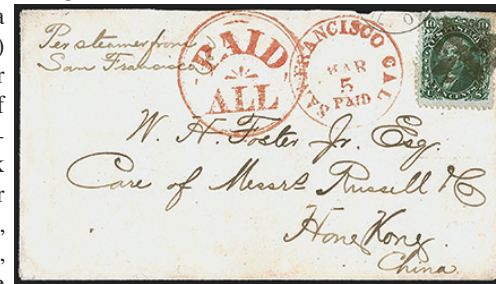 Per steamer from
San Francisco
PAID
ALL
SAN FRANCISCO CAL
MAR
5
PAID
10
10
U.S. POSTAGE
W. H. Foster Jr. Esq.
Care of Messrs Russell & Co
Hong Kong.
China.
a
)
r
f
-
k
r
,
,